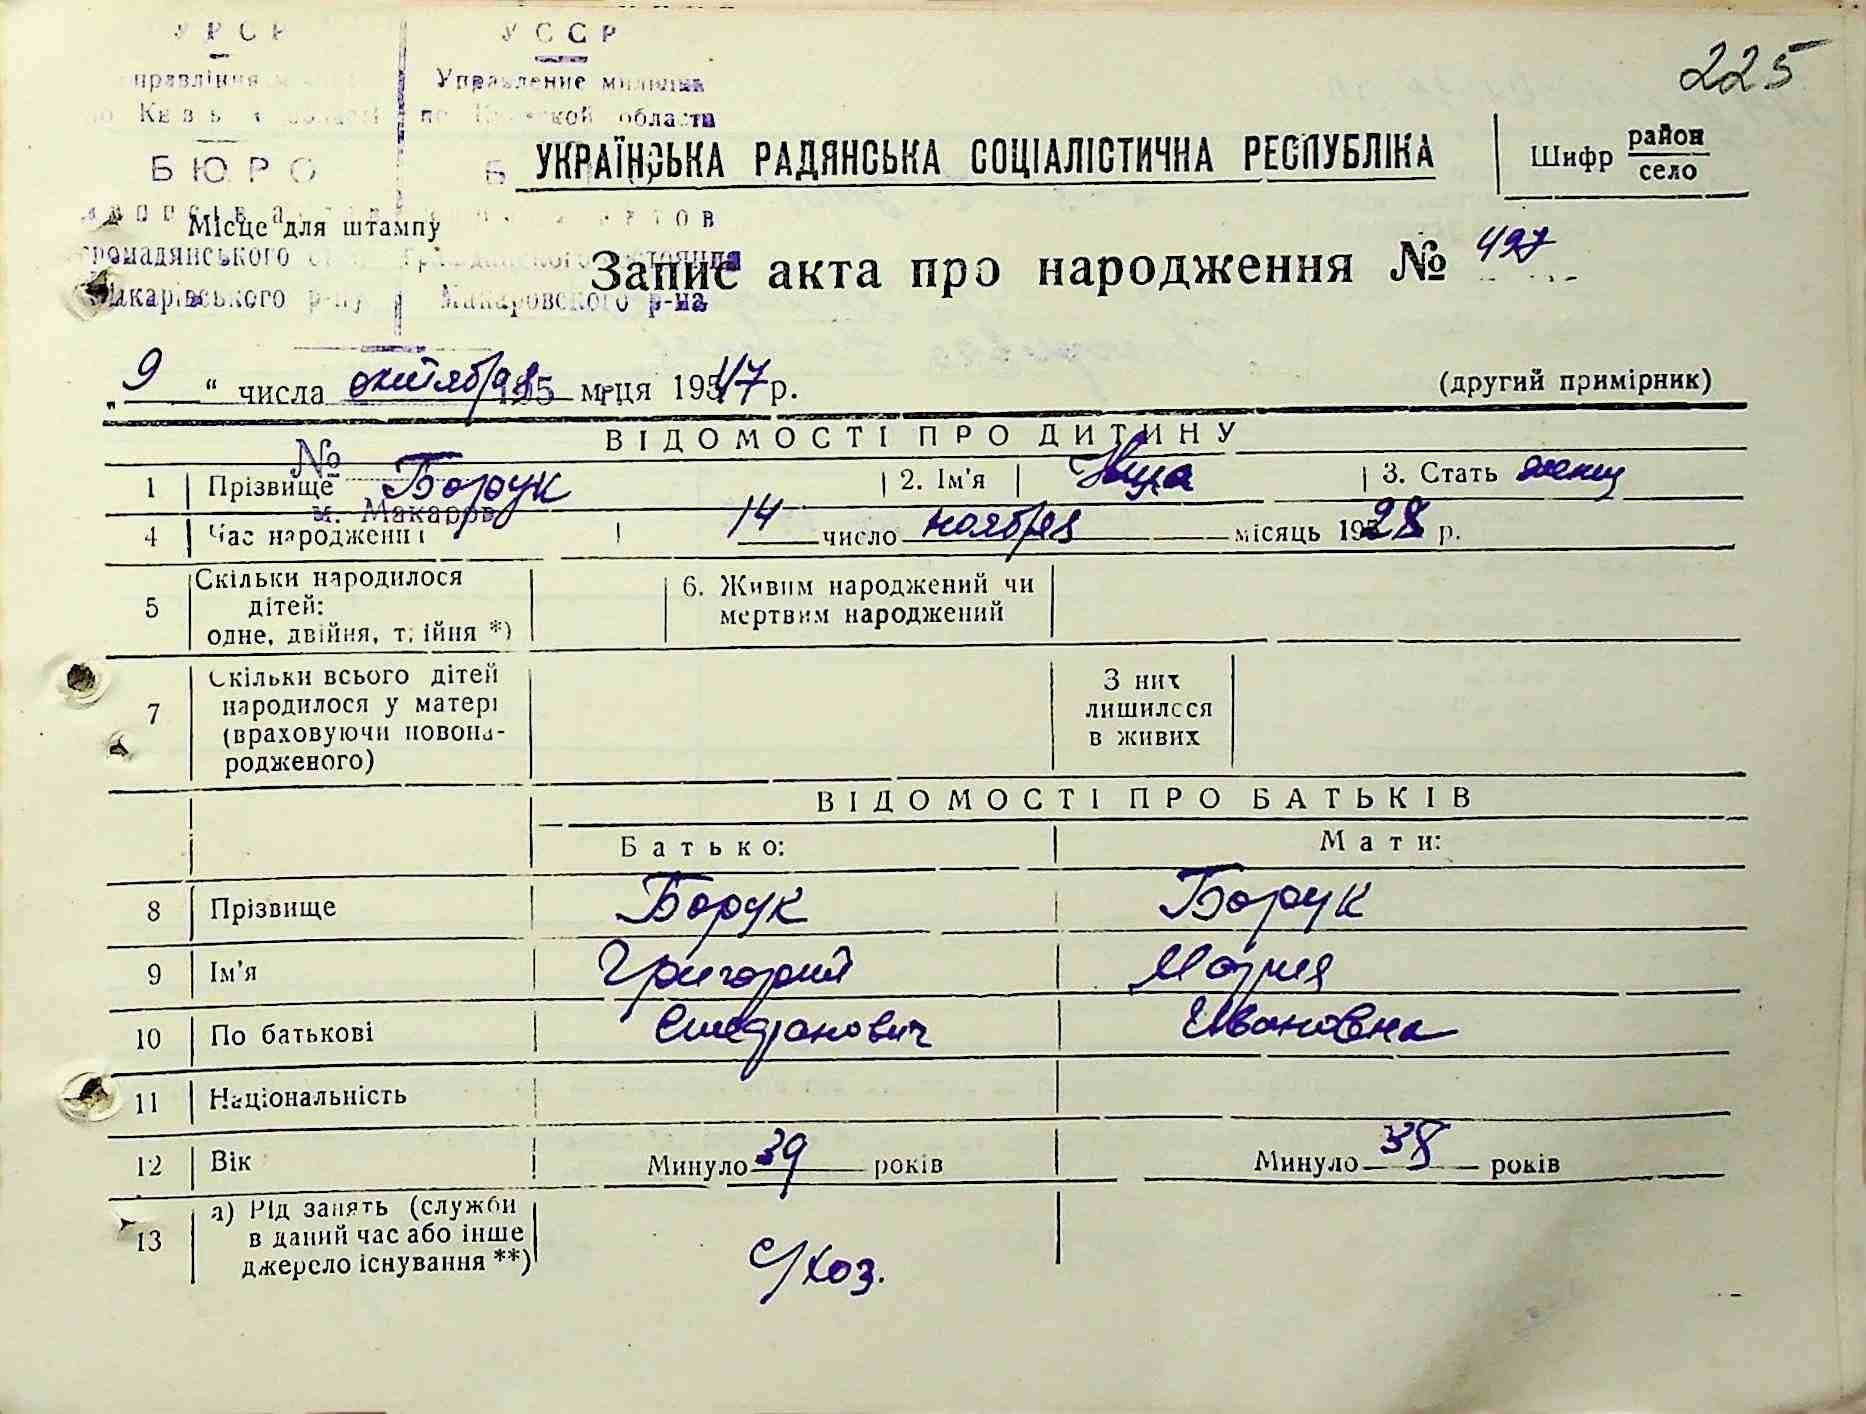 225
УРСР УССР
Управление милиции
области по Киевской области
БЮРО
УКРАЇНСЬКА РАДЯНСЬКА СОЦІАЛІСТИЧНА РЕСПУБЛІКА
Шифр район
село
Місце для штампу
громадянського гражданского состояния
Макарівського р-ну Макаровского р-на
Запис акта про народження № 427
"9" числа октября 195 м-ця 1947 р. (другий примірник)
ВІДОМОСТІ ПРО ДИТИНУ
№
1 Прізвище Борук 2. Ім'я Нина 3. Стать женщ
м. Макаров
4 Час народження 14 число ноября місяць 1928 р.
5 Скільки народилося дітей: одне, двійня, трійня *) 6. Живим народжений чи мертвим народжений
7 Скільки всього дітей народилося у матері (враховуючи новонародженого) З них лишилося в живих
ВІДОМОСТІ ПРО БАТЬКІВ
Батько: Мати:
8 Прізвище Борук Борук
9 Ім'я Григорий Мария
10 По батькові Стефанович Ивановна
11 Національність
12 Вік Минуло 39 років Минуло 38 років
13 а) Рід занять (служби в даний час або інше джерело існування **) с/хоз.